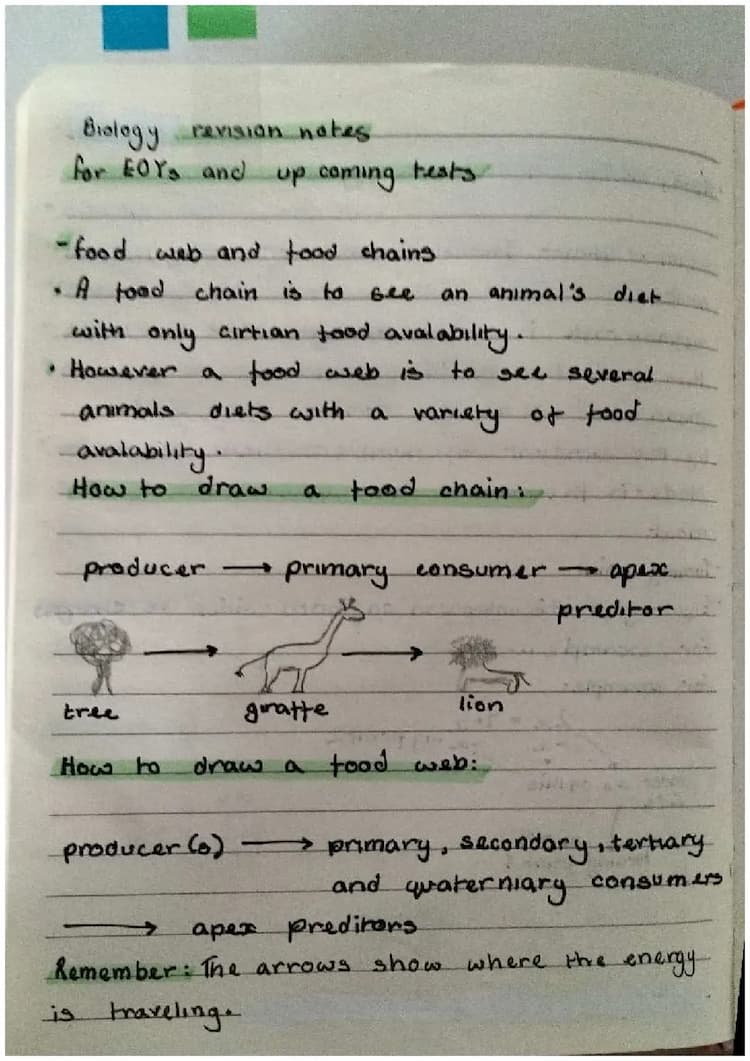 Biology revision notes
for EOYs and up coming tests
- food web and food chains
• A food chain is to see an animal's diet
with only cirtian food avalability.
• However a food web is to see several
animals diets with a variety of food
avalability.
How to draw a food chain:
producer → primary consumer → apex
preditor
tree giraffe lion
How to draw a food web:
producer(s) → primary, secondary, tertiary
and quaterniary consumers
→ apex preditors
Remember: The arrows show where the energy
is traveling.